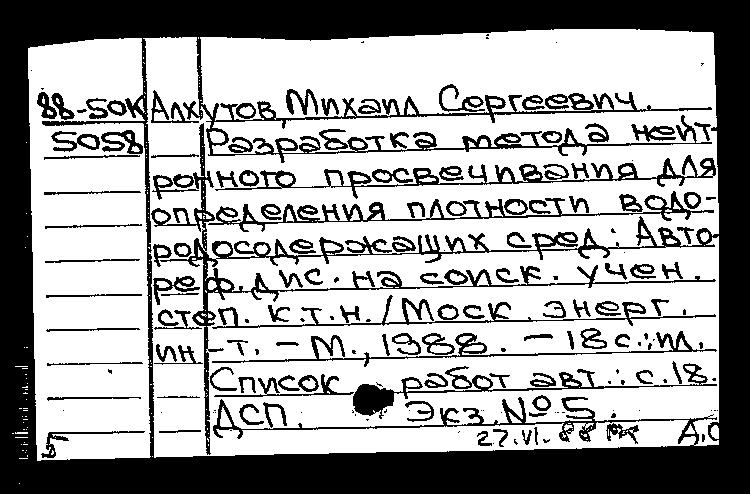 88-50К Алхутов, Михаил Сергеевич.
5058 Разработка метода нейт-
ронного просвечивания для
определения плотности водо-
родосодержащих сред: Авто-
реф. дис. на соиск. учен.
степ. к.т.н. / Моск. энерг.
ин-т. – М., 1988. – 18 с.: ил.
Список работ авт.: с. 18.
ДСП. Экз. № 5.
27.VI.88 А.С